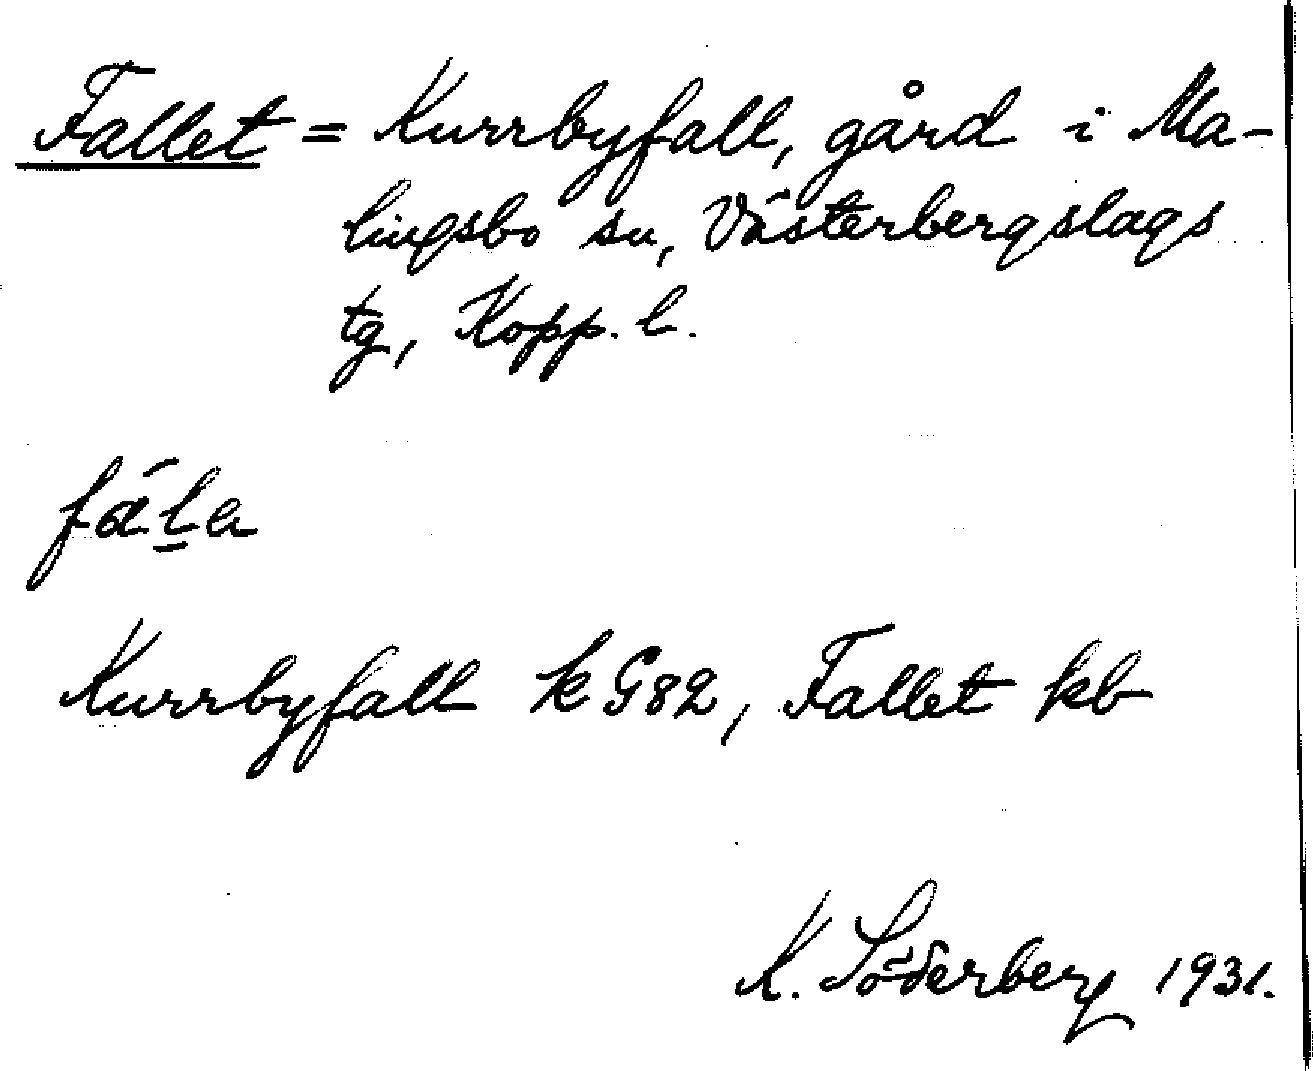 Fallet = Kurrbyfall, gård i Ma-
lingsbo sn, Västerbergslags
tg, Kopp. l.
Kurrbyfall k G82, Fallet kb
K. Söderberg 1931.